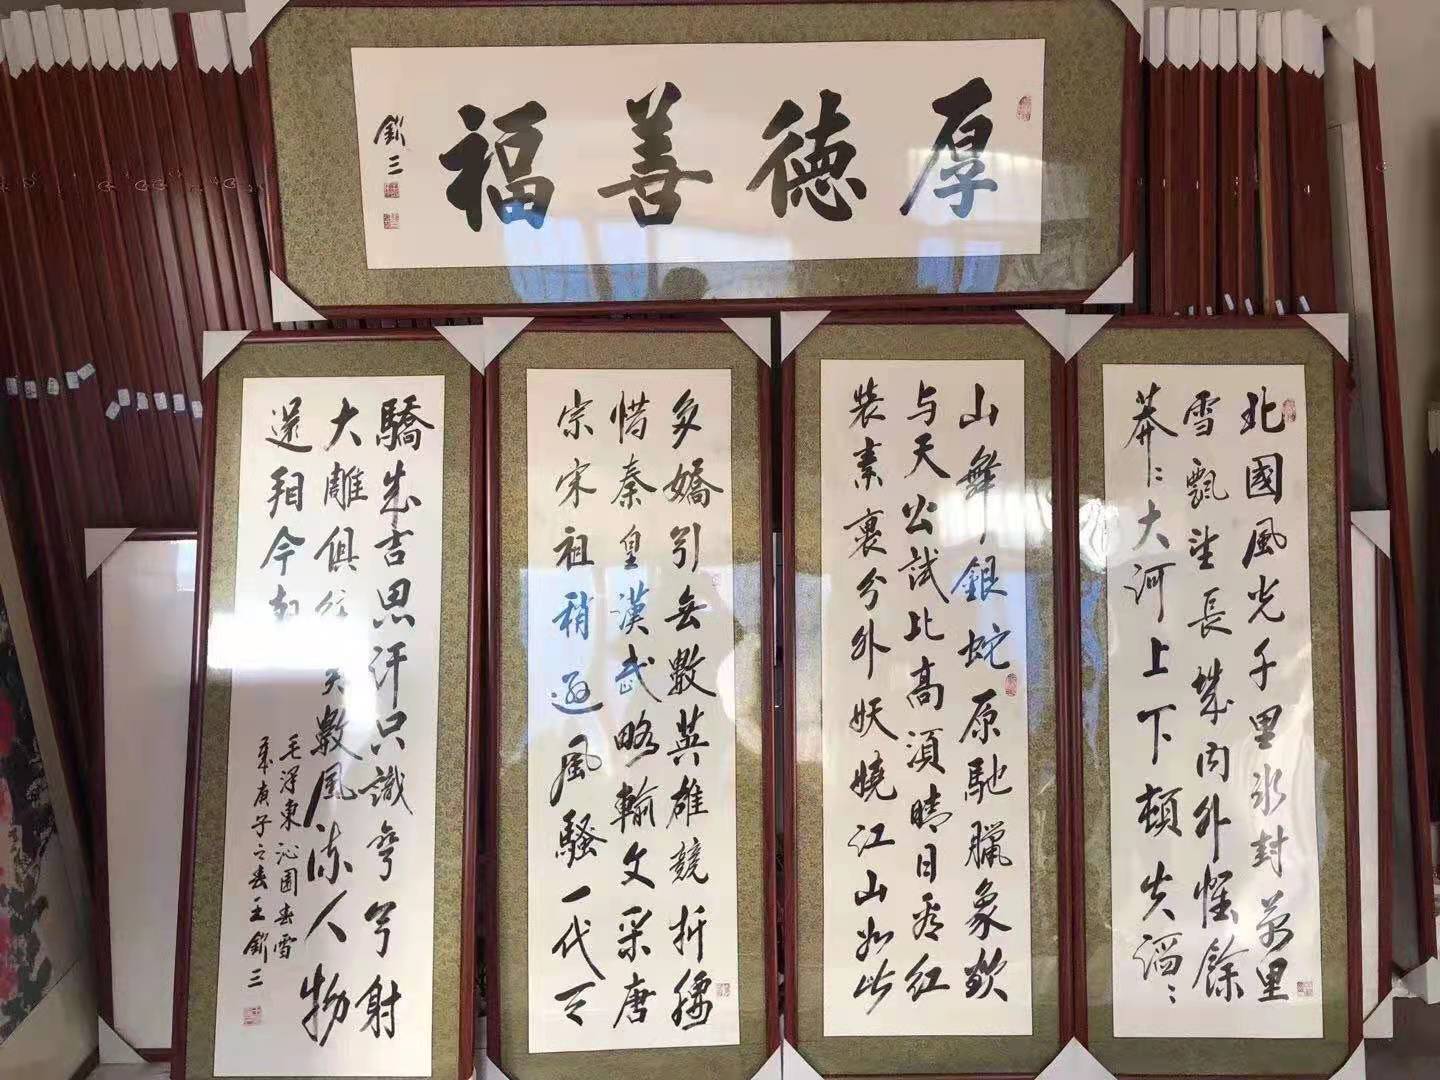 厚德善福
三
北國風光千里冰封萬里
雪飄望長城内外惟餘
莽〻大河上下頓失滔〻
山舞銀蛇原馳臘象欲
与天公試比高須晴日看紅
装素裹分外妖嬈江山如此
多嬌引無數英雄競折腰
惜秦皇漢武略輸文采唐
宗宋祖稍遜風騷一代天
驕成吉思汗只識彎弓射
大雕俱往矣數風流人物
還看今朝
毛澤東沁園春雪
歲庚子之春王三